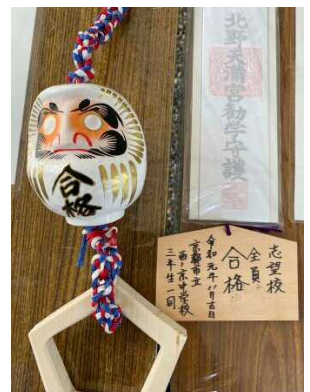 合格
北野天満宮勧学守護
志望校
全員
合格
令和元年八月吉日
京都市立
西ノ京中学校
三年生一同